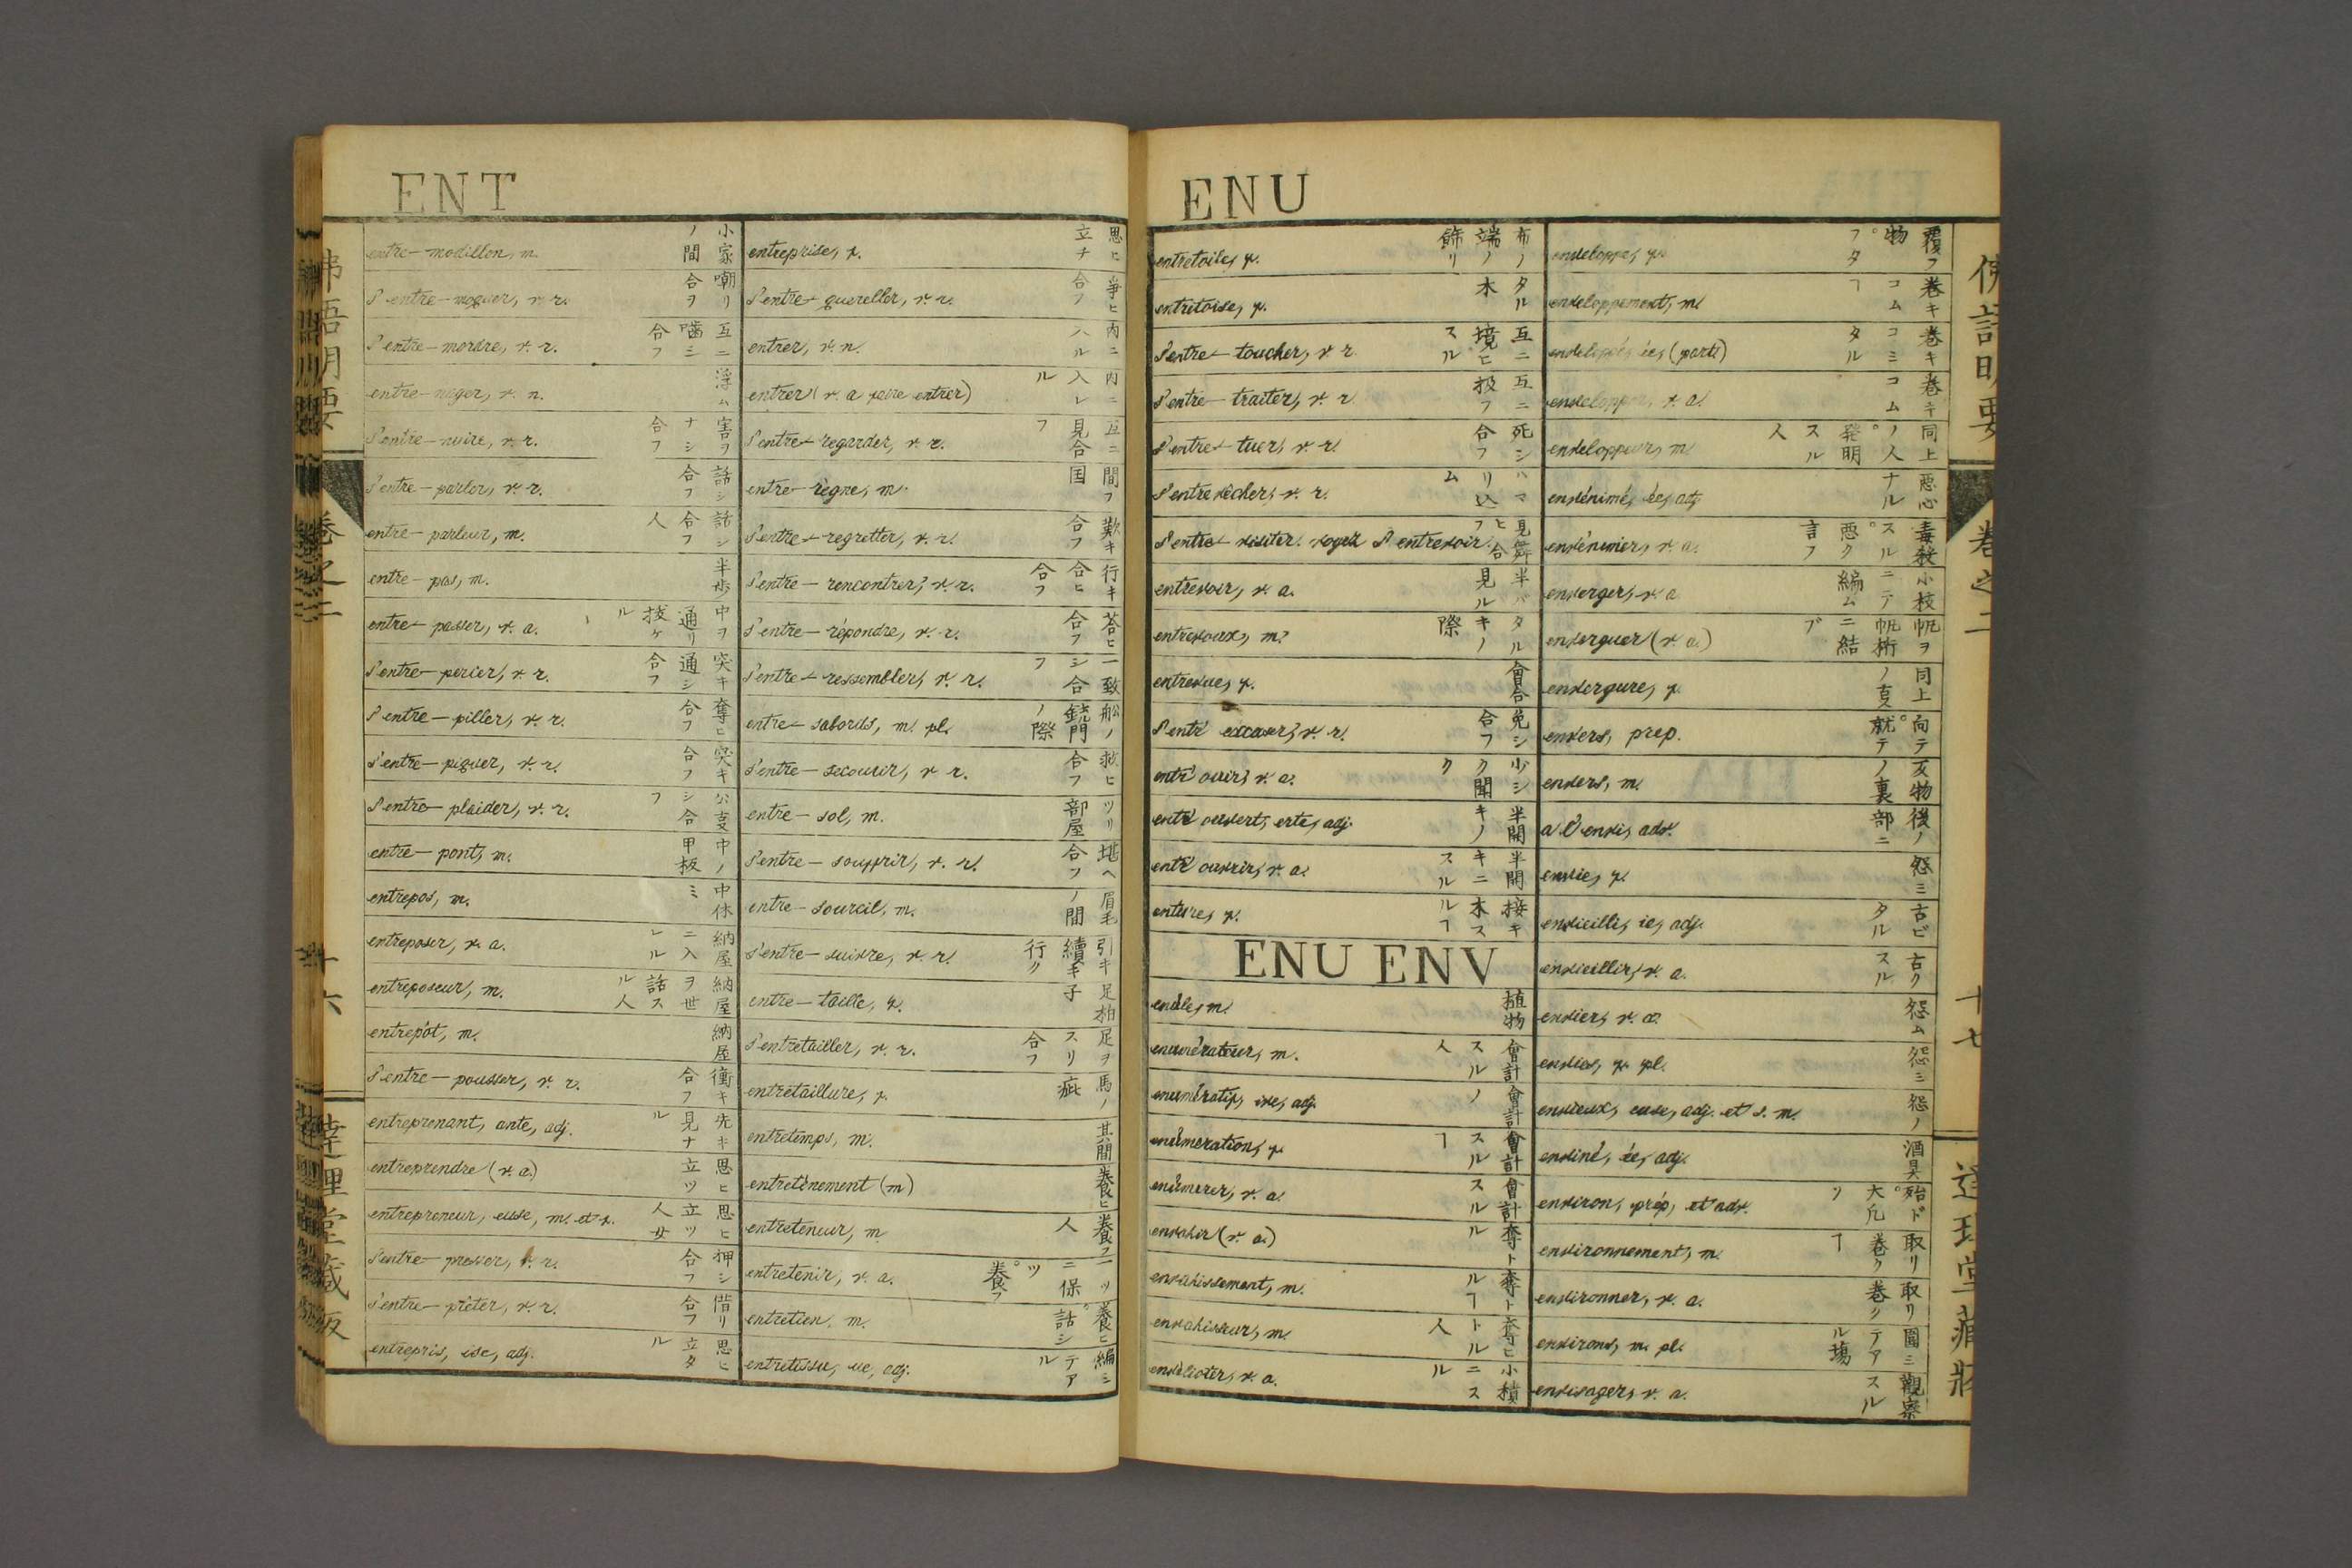 ENT
entre-modillon, m. 小家ノ間
S'entre-moquer, v. r. 嘲リ合ヲ
S'entre-mordre, v. r. 互ニ噛シ合フ
entre-nager, v. n. 浮ム
S'entre-nuire, v. r. 害ヲナシ合フ
S'entre-parler, v. r. 話シ合フ
entre-parleur, m. 話シ合フ人
entre-pas, m. 半歩
entre-passer, v. a. 中ヲ通リ抜ケル
S'entre-percer, v. r. 突キ通シ合フ
S'entre-piller, v. r. 奪ヒ合フ
S'entre-piquer, v. r. 突キ合フ
S'entre-plaider, v. r. 公事シ合フ
entre-pont, m. 中ノ甲板
entrepos, m. 中休ミ
entreposer, v. a. 納屋ニ入レル
entreposeur, m. 納屋ヲ世話スル人
entrepôt, m. 納屋
S'entre-pousser, v. r. 衝キ合フ
entreprenant, ante, adj. 先キ見ナル
entreprendre (v. a.) 思ヒ立ツ
entrepreneur, euse, m. et f. 思ヒ立ツ人 女
S'entre-presser, v. r. 押シ合フ
S'entre-prêter, v. r. 借リ合フ
entrepris, ise, adj. 思ヒ立タル
entreprise, f. 思ヒ立チ
S'entre-quereller, v. r. 爭ヒ合フ
entrer, v. n. 内ニ入ル
entrer (v. a faire entrer) 内ニ入レル
S'entre-regarder, v. r. 互ニ見合フ
entre-règne, m. 間フ国
S'entre-regretter, v. r. 歎キ合フ
S'entre-rencontrer, v. r. 行キ合ヒ合フ
S'entre-répondre, v. r. 荅ヒ合フ
S'entre-ressembler, v. r. 一致シ合フ
entre-sabords, m. pl. 舩ノ銃門ノ際
S'entre-secourir, v. r. 救ヒ合フ
entre-sol, m. ツリ部屋
S'entre-souffrir, v. r. 堪ヘ合フ
entre-sourcil, m. 眉毛ノ間
S'entre-suivre, v. r. 引キ續キ行ク
entre-taille, f. 足拍子
S'entretailler, v. r. 足ヲスリ合フ
entretaillure, f. 馬ノ疵
entretemps, m. 其間
entretènement (m) 養ヒ
entreteneur, m 養フ人
entretenir, v. a. 一ツニ保ツ。養フ
entretien, m. 養ヒ。話シ
entretissu, ue, adj. 編ミテアル
ENU
entretoile, f. 布ノ端ノ飾リ
entretoise, f. タル木
S'entre-toucher, v. r. 互ニ境ヒスル
S'entre-traiter, v. r. 互ニ扱フ
S'entre-tuer, v. r. 死シ合フ
S'entrevêcher, v. r. ハマリ込ム
S'entre-visiter. voyez S'entrevoir. 見舞ヒ合フ
entrevoir, v. a. 半バ見ル
entrevoux, m. タルキノ際
entrevue, f. 會合
S'entr'excuser, v. r. 免シ合フ
entr'ouir, v. a. 少シク聞ク
entr'ouvert, erte, adj. 半開キノ
entr'ouvrir, v. a. 半開キニスル
enture, f. 接キ木スルヿ
ENU ENV
enule, m. 植物
enumérateur, m. 會計スル人
enumératif, ive, adj. 會計ノ
enumeration, f. 會計スルヿ
enumerer, v. a. 會計スル
envahir (v. a.) 奪トル
envahissement, m. 奪トルヿ
envahisseur, m. 奪ヒトル人
envelioter, v. a. 小積ニスル
enveloppe, f. 覆フ物。フタ
enveloppement, m. 巻キコムヿ
enveloppé, ée, (part) 巻キコミタル
envelopper, v. a. 巻キコム
enveloppeur, m. 同上ノ人。発明スル人
envénimé, ée, adj. 悪心ナル
envénimer, v. a. 毒殺スル。悪ク言フ
enverger, v. a 小枝ニテ編ム
enverguer (v. a.) 帆ヲ帆桁ニ結ブ
envergure, f. 同上ノ叓
envers, prép. 向テ。就テ
envers, m. 反物ノ裏
a l'envi, adv. 後ノ部ニ
envie, f. 怨ミ
envieilli, ie, adj. 古ビタル
envieillir, v. a. 古クスル
envier, v. a. 怨ム
envies, f. pl. 怨ミ
envieux, euse, adj. et s. m. 怨ノ
enviné, ée, adj. 酒臭
environ, prép, et adv. 殆ド。大凡ソ
environnement, m. 取リ巻クヿ
environner, v. a. 取リ巻ク
environs, m. pl. 圍ミテアル場
envisager, v. a. 觀察スル
巻之二
十六
十七